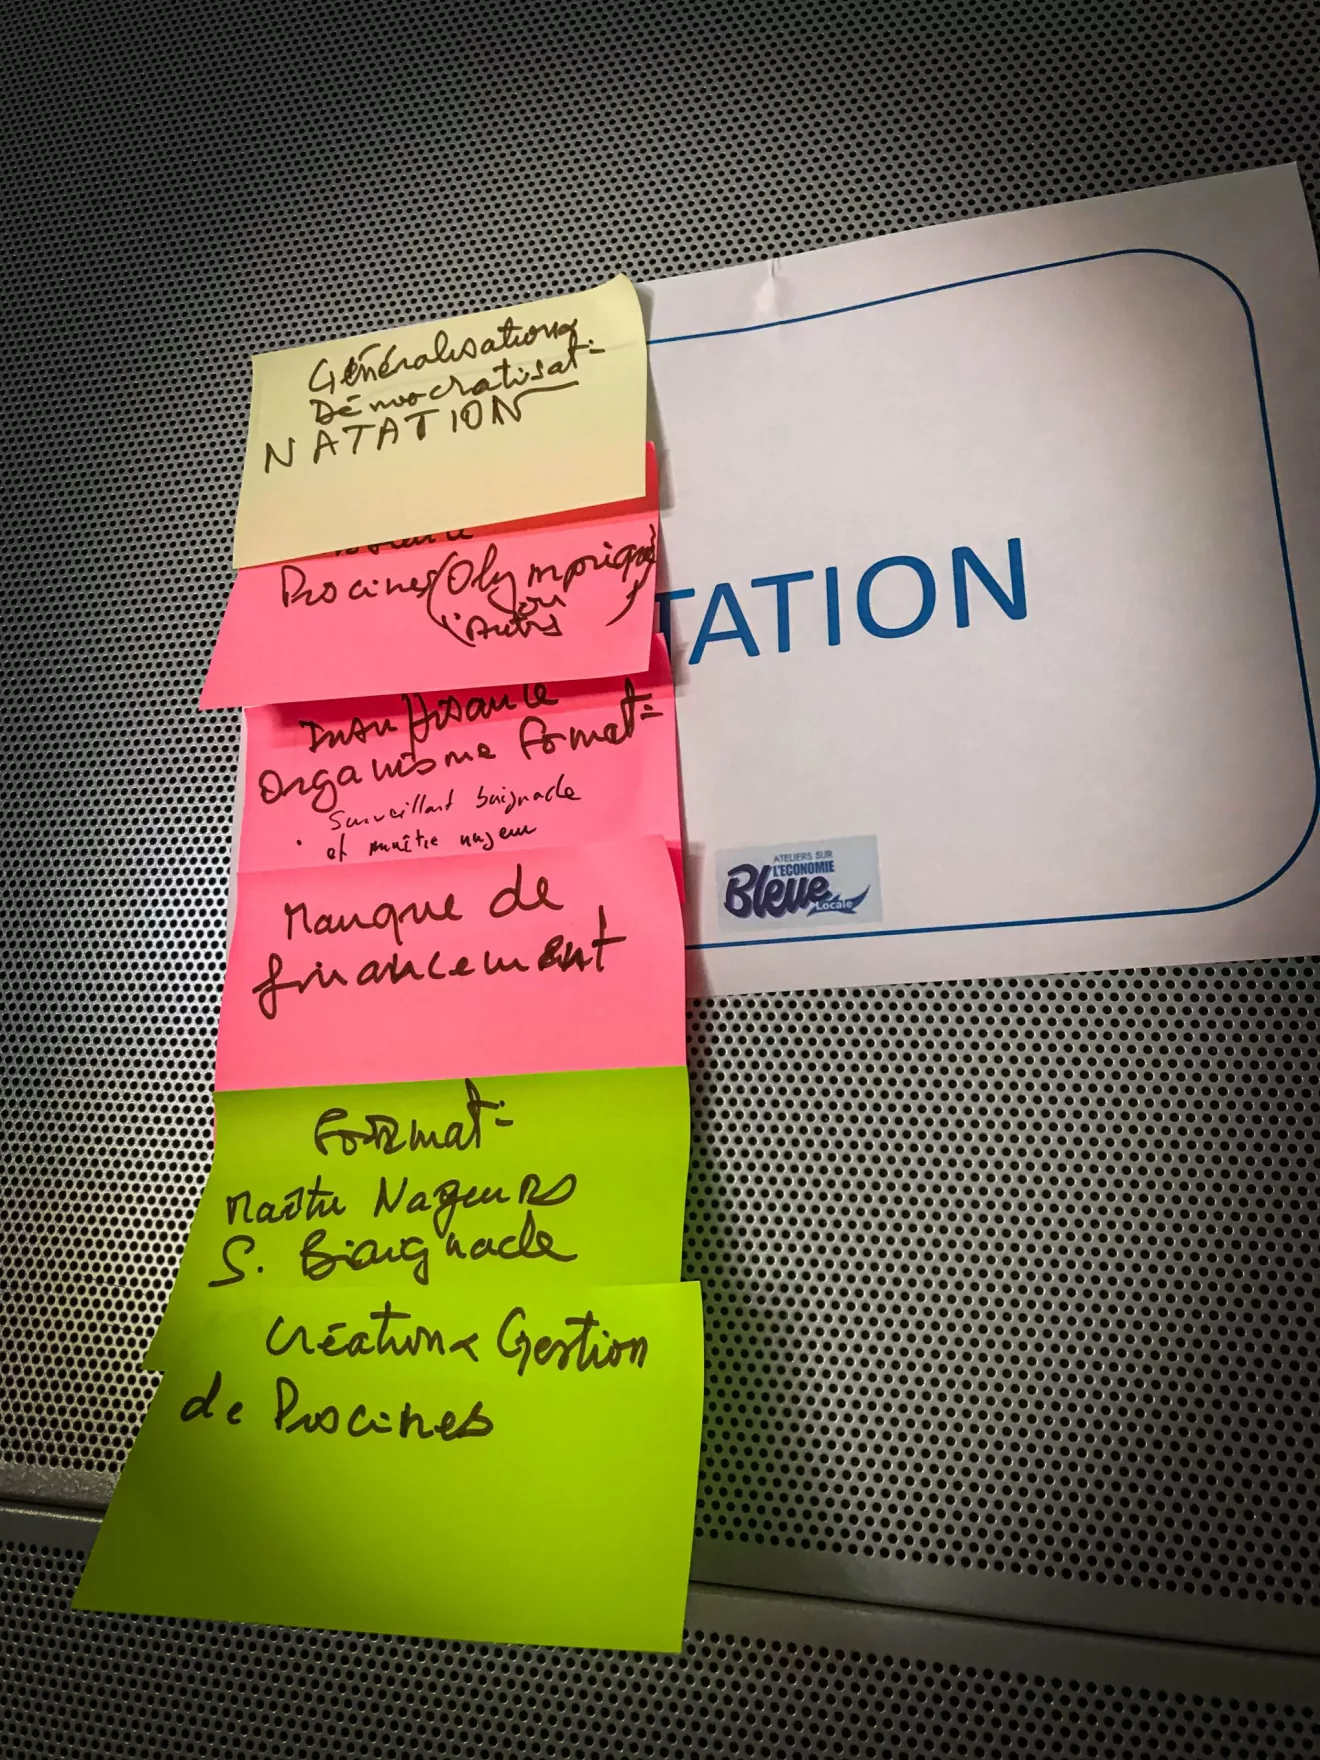 Généralisation &
Démocratisat°
NATATION
Piscines (Olympique
ou
Autres)
Insuffisance
Organisme format°
• Surveillant baignade
et maître nageur
Manque de
financement
Format°
Maître Nageurs
S. Baignade
Création & Gestion
de Piscines
TATION
ATELIERS SUR
L'ECONOMIE
Bleue
Locale